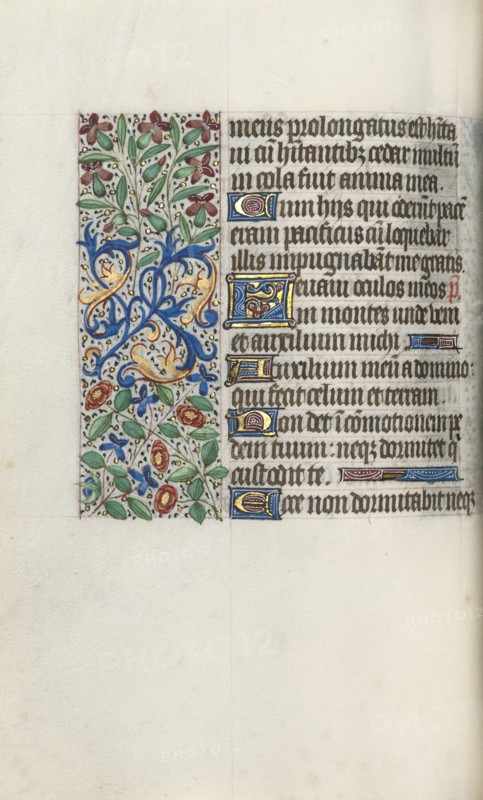 meus prolongatus est hita
ui cũ hitantibz cedar multũ
in cola fuit anima mea.
Cum hijs qui oderũt pacẽ
eram pacificus cũ loquebar
illis impugnabãt me gratis.
Leuaui oculos meos p̃.
in montes unde veni
et auxilium michi.
Auxilium meũ a domino:
qui fecit celum et terram.
Non det ĩ cõmotionem pe
dem tuum: neqz dormitet q̃
custodit te.
Ecce non dormitabit neqz